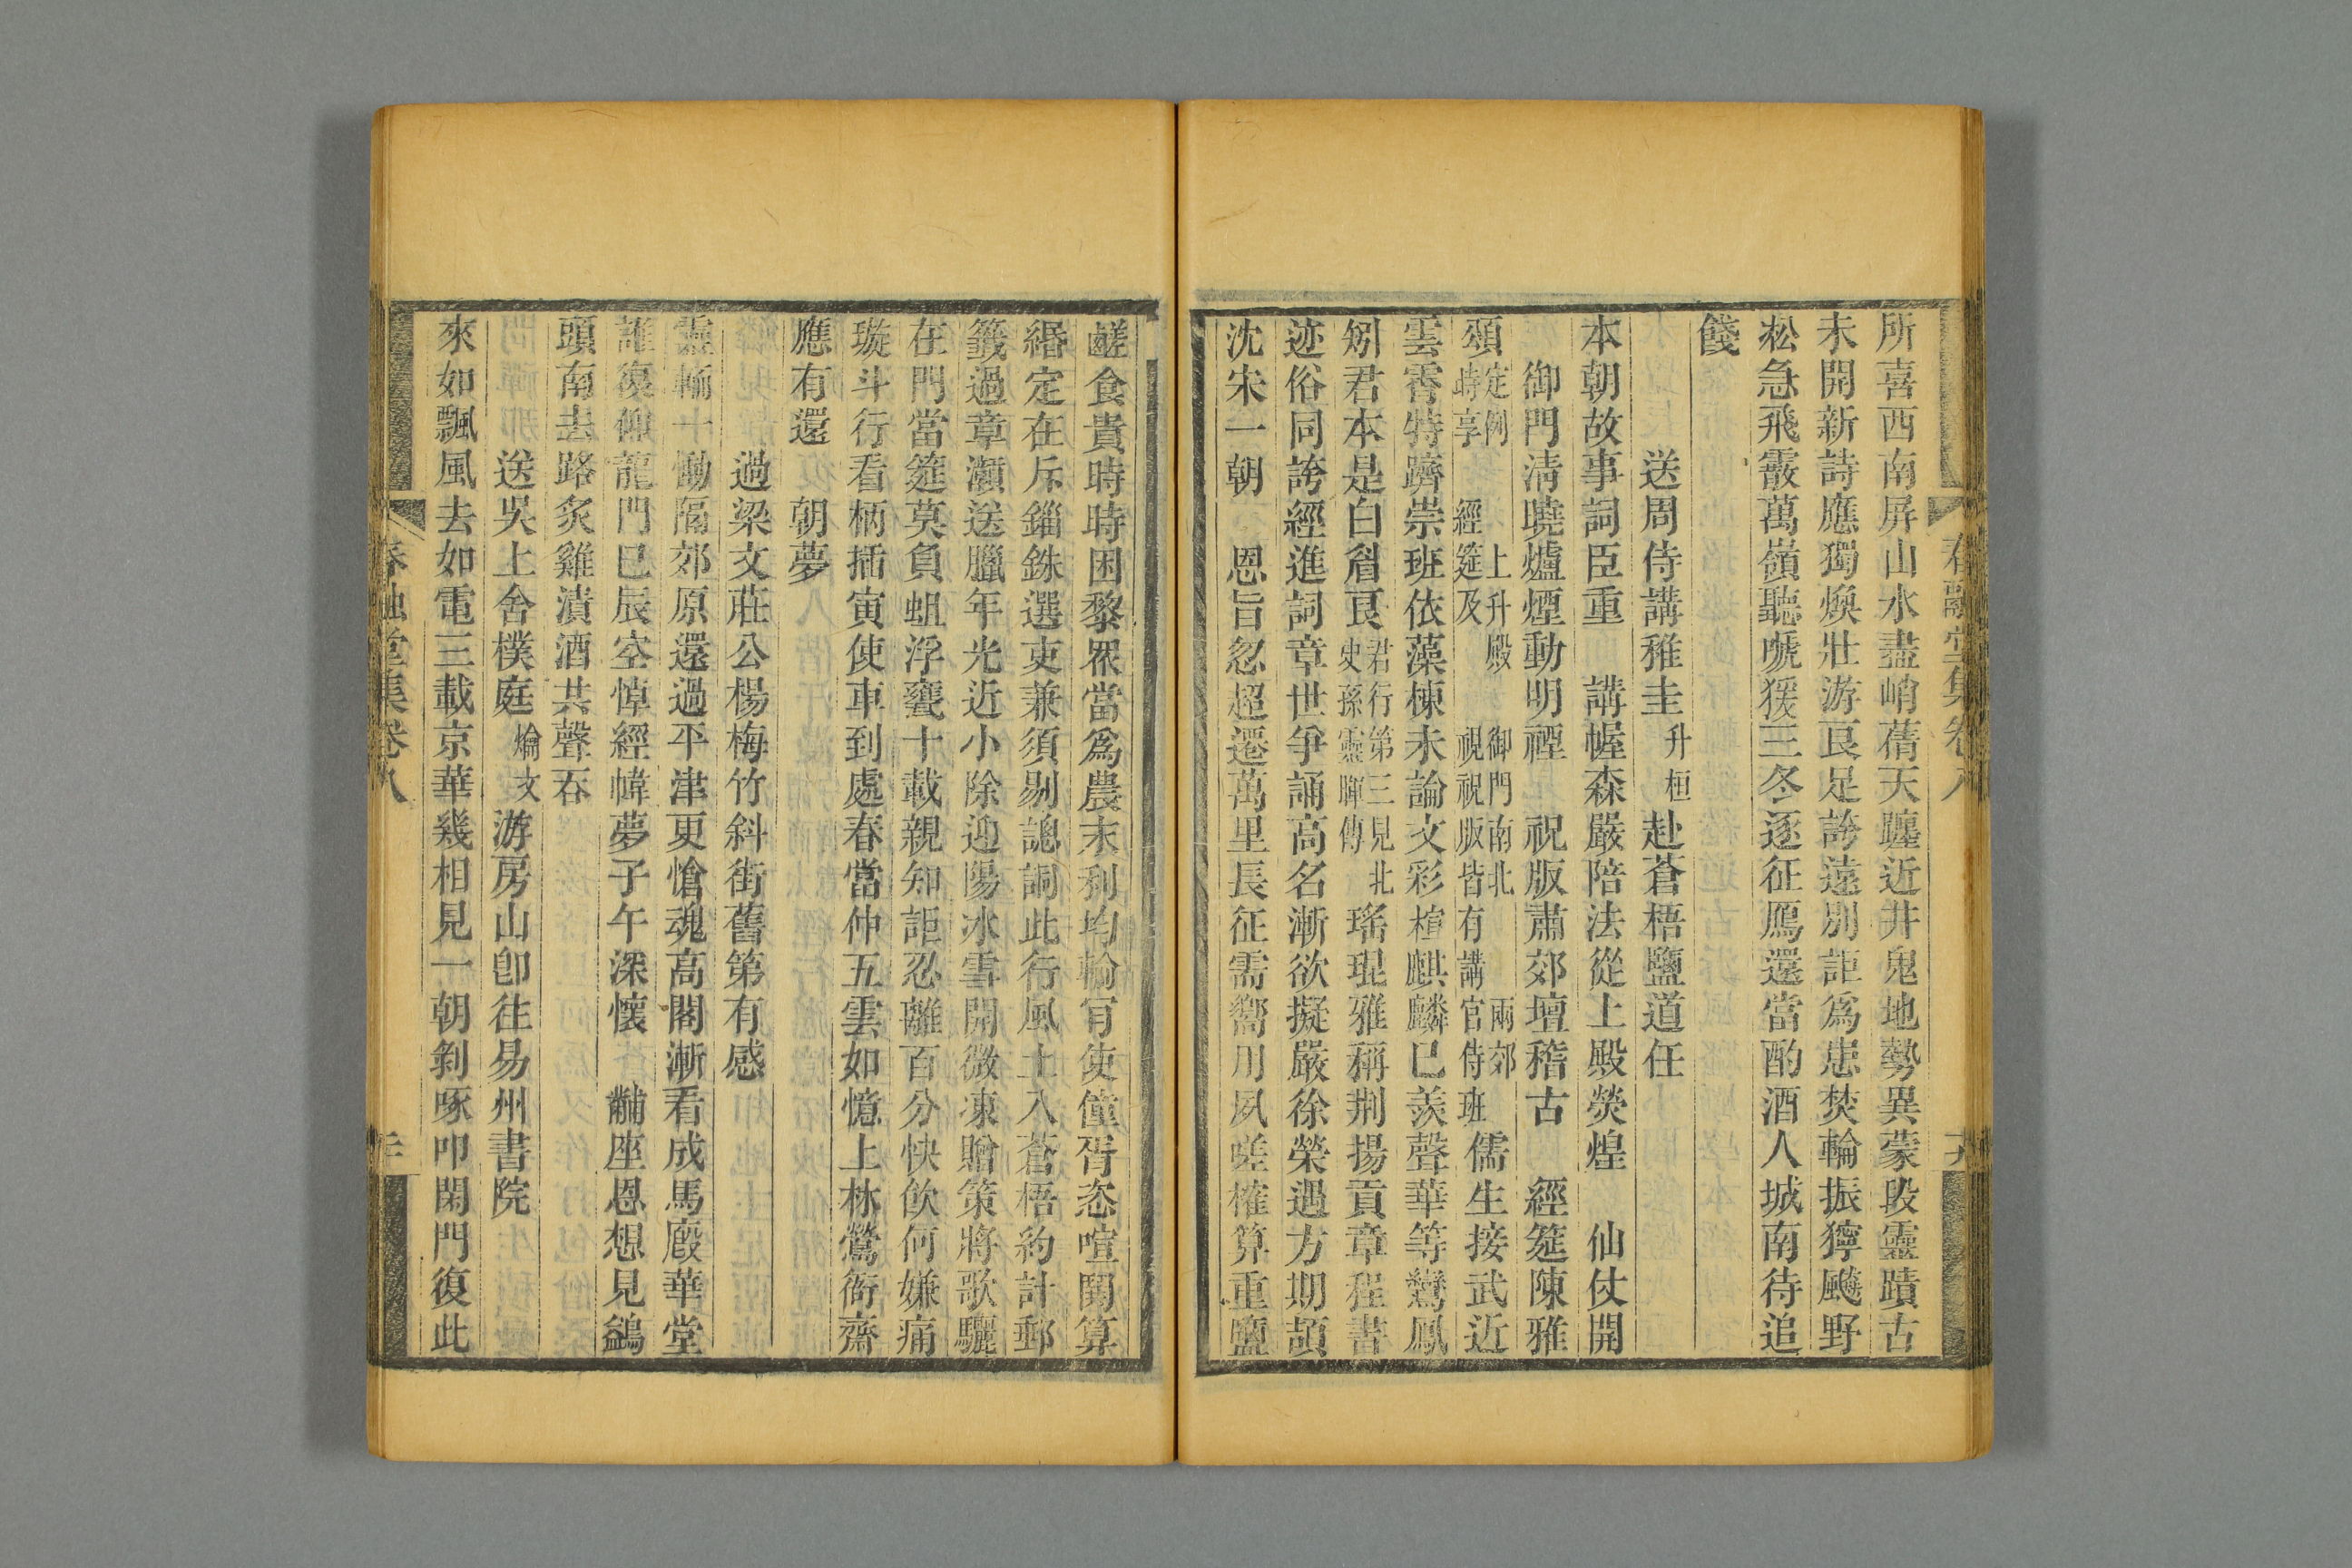 春融堂集卷八
所喜西南屏山水盡峭蒨天躔近井鬼地勢異蒙段靈蹟古
未開新詩應獨煥壯游良足誇遠別詎爲悲焚輪振獰飈野
松急飛霰萬嶺聽唬猨三冬逐征鴈還當酌酒人城南待追
餞
送周侍講稚圭升桓赴蒼梧鹽道任
本朝故事詞臣重 講幄森嚴陪法從上殿熒煌 仙仗開
御門清曉爐煙動明禋 祝版肅郊壇稽古 經筵陳雅
頌定例 上升殿 御門南北兩郊時享 經筵及 視祝版皆有講官侍班儒生接武近
雲霄特躋崇班依藻棟未論文彩楦麒麟已羨聲華等鸞鳳
矧君本是白眉良君行第三見北史孫靈暉傳瑤琨雅稱荆揚貢章程書
迹俗同誇經進詞章世爭誦高名漸欲擬嚴徐榮遇方期頡
沈宋一朝 恩旨忽超遷萬里長征需嚮用夙嗟榷算重鹽
鹺食貴時時困黎眾當爲農末利均輸肎使僮胥恣喧鬨算
緡定在斥錙銖選吏兼須剔謥詷此行風土入蒼梧約計郵
籤過章瀬送臘年光近小除迎陽冰雪開微凍贈策將歌驪
在門當筵莫負蛆浮甕十載親知詎忍離百分快飲何嫌痛
璇斗行看柄插寅使車到處春當仲五雲如憶上林鶯衙齋
應有還 朝夢
過梁文莊公楊梅竹斜街舊第有感
靈輀十慟隔郊原還過平津更愴魂高閣漸看成馬廄華堂
誰復仰龍門巳辰空悼經幃夢子午深懷 黼座恩想見鷁
頭南去路炙雞漬酒共聲吞
送吳上舍樸庭爚文游房山卽往易州書院
來如飄風去如電三載京華幾相見一朝剝啄叩閑門復此
春融堂集卷八